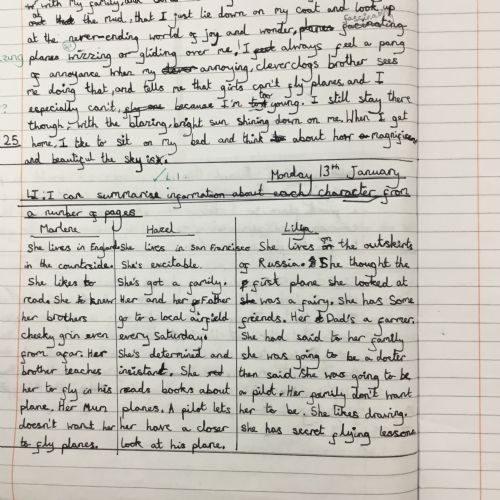 with my family, and
the mud, that I just lie down on my coat and look up
at the never-ending world of joy and wonder, planes facinating
planes wizzing or gliding over me! I always feel a pang
of annoyance when my clever annoying, cleverclogs brother sees
me doing that, and tells me that girls can't fly planes, and I
especially can't, because I'm too young. I still stay there
though, with the blazing, bright sun shining down on me. When I get
25 home, I like to sit on my bed and think about how magnificent
and beautiful the sky is.
Monday 13th January
LI: I can summarise information about each character from
a number of pages
Marlene Hazel Lilya
She lives in England She lives in San Francisco She lives on the outskirts
in the countryside. She's excitable. of Russia. She thought the
She likes to She's got a family. first plane she looked at
read. She knew Her and her Father was a fairy. She has some
her brothers go to a local airfield friends. Her Dad's a farmer.
cheeky grin even every Saturday. She had said to her family
from afar. Her She's determined and she was going to be a doctor
brother teaches insistant. She then said she was going to be
her to fly in his reads books about a pilot. Her family don't want
plane. Her Mum planes. A pilot lets her to be. She likes drawing.
doesn't want her her have a closer she has secret flying lessons
to fly planes. look at his plane.